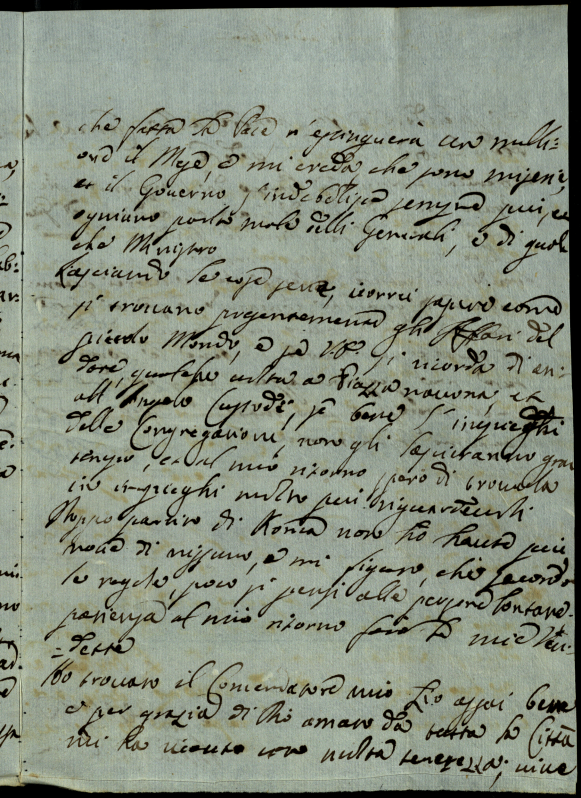 che fatta la Pace s'estinguerà con molti=
 il Mese, e mi creda che sono miserie,
et il Governo s'indebolisce sempre più, et
ogniuno parla male delli Generali, e di qual
che Ministro
Lasciando le cose serie, vorrei sapere come
si trovano presentemente gli Affari del
piccolo Mondo, e se V.S. si ricorda di an=
dare qualche volta a Piazza Navona, et
all'Angelo Custode, se bene l'impieghi
delle Congregazioni non gli lascieranno gran
tempo, et al mio ritorno spero di trovarla
in impieghi molto più riguardevoli
Doppo partito di Roma non ho havuto più
nove di nissuno, e mi figuro, che secondo
le regole, poco si pensi alle persone lontane
pazienza al mio ritorno farò le mie Ven=
=dette
Ho trovato il Comendatore mio Zio assai bene
e per grazia di Dio amato da tutta la Città
mi ha ricevuto con molta tenerezza; vive